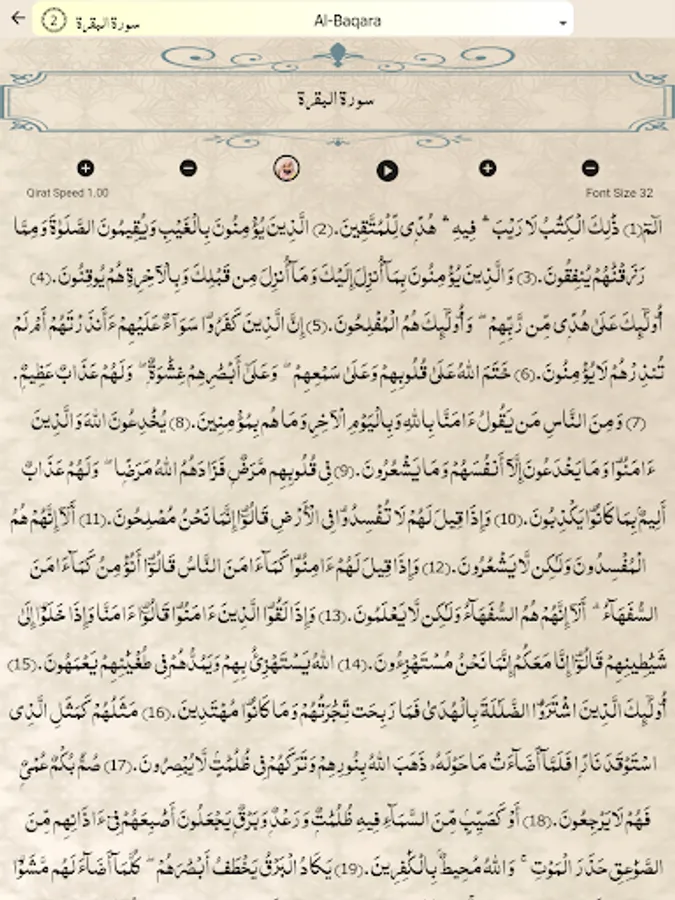 2 سورة البقرة Al-Baqara
سورة البقرة
Qirat Speed 1.00 Font Size 32
الٓمٓ(1) ذَٰلِكَ الْكِتَٰبُ لَا رَيْبَ ۛ فِيهِ ۛ هُدًى لِّلْمُتَّقِينَ.(2) الَّذِينَ يُؤْمِنُونَ بِالْغَيْبِ وَيُقِيمُونَ الصَّلَوٰةَ وَمِمَّا
رَزَقْنَٰهُمْ يُنفِقُونَ.(3) وَالَّذِينَ يُؤْمِنُونَ بِمَآ أُنزِلَ إِلَيْكَ وَمَآ أُنزِلَ مِن قَبْلِكَ وَبِالْءَاخِرَةِ هُمْ يُوقِنُونَ.(4)
أُولَٰٓئِكَ عَلَىٰ هُدًى مِّن رَّبِّهِمْ ۖ وَأُولَٰٓئِكَ هُمُ الْمُفْلِحُونَ.(5) إِنَّ الَّذِينَ كَفَرُوا۟ سَوَآءٌ عَلَيْهِمْ ءَأَنذَرْتَهُمْ أَمْ لَمْ
تُنذِرْهُمْ لَا يُؤْمِنُونَ.(6) خَتَمَ اللَّهُ عَلَىٰ قُلُوبِهِمْ وَعَلَىٰ سَمْعِهِمْ ۖ وَعَلَىٰٓ أَبْصَٰرِهِمْ غِشَٰوَةٌ ۖ وَلَهُمْ عَذَابٌ عَظِيمٌ.
(7) وَمِنَ النَّاسِ مَن يَقُولُ ءَامَنَّا بِاللَّهِ وَبِالْيَوْمِ الْءَاخِرِ وَمَا هُم بِمُؤْمِنِينَ.(8) يُخَٰدِعُونَ اللَّهَ وَالَّذِينَ
ءَامَنُوا۟ وَمَا يَخْدَعُونَ إِلَّآ أَنفُسَهُمْ وَمَا يَشْعُرُونَ.(9) فِى قُلُوبِهِم مَّرَضٌ فَزَادَهُمُ اللَّهُ مَرَضًا ۖ وَلَهُمْ عَذَابٌ
أَلِيمٌۢ بِمَا كَانُوا۟ يَكْذِبُونَ.(10) وَإِذَا قِيلَ لَهُمْ لَا تُفْسِدُوا۟ فِى الْأَرْضِ قَالُوٓا۟ إِنَّمَا نَحْنُ مُصْلِحُونَ.(11) أَلَآ إِنَّهُمْ هُمُ
الْمُفْسِدُونَ وَلَٰكِن لَّا يَشْعُرُونَ.(12) وَإِذَا قِيلَ لَهُمْ ءَامِنُوا۟ كَمَآ ءَامَنَ النَّاسُ قَالُوٓا۟ أَنُؤْمِنُ كَمَآ ءَامَنَ
السُّفَهَآءُ ۗ أَلَآ إِنَّهُمْ هُمُ السُّفَهَآءُ وَلَٰكِن لَّا يَعْلَمُونَ.(13) وَإِذَا لَقُوا۟ الَّذِينَ ءَامَنُوا۟ قَالُوٓا۟ ءَامَنَّا وَإِذَا خَلَوْا۟ إِلَىٰ
شَيَٰطِينِهِمْ قَالُوٓا۟ إِنَّا مَعَكُمْ إِنَّمَا نَحْنُ مُسْتَهْزِءُونَ.(14) اللَّهُ يَسْتَهْزِئُ بِهِمْ وَيَمُدُّهُمْ فِى طُغْيَٰنِهِمْ يَعْمَهُونَ.(15)
أُولَٰٓئِكَ الَّذِينَ اشْتَرَوُا۟ الضَّلَٰلَةَ بِالْهُدَىٰ فَمَا رَبِحَت تِّجَٰرَتُهُمْ وَمَا كَانُوا۟ مُهْتَدِينَ.(16) مَثَلُهُمْ كَمَثَلِ الَّذِى
اسْتَوْقَدَ نَارًا فَلَمَّآ أَضَآءَتْ مَا حَوْلَهُۥ ذَهَبَ اللَّهُ بِنُورِهِمْ وَتَرَكَهُمْ فِى ظُلُمَٰتٍ لَّا يُبْصِرُونَ.(17) صُمٌّۢ بُكْمٌ عُمْىٌ
فَهُمْ لَا يَرْجِعُونَ.(18) أَوْ كَصَيِّبٍ مِّنَ السَّمَآءِ فِيهِ ظُلُمَٰتٌ وَرَعْدٌ وَبَرْقٌ يَجْعَلُونَ أَصَٰبِعَهُمْ فِىٓ ءَاذَانِهِم مِّنَ
الصَّوَٰعِقِ حَذَرَ الْمَوْتِ ۚ وَاللَّهُ مُحِيطٌۢ بِالْكَٰفِرِينَ.(19) يَكَادُ الْبَرْقُ يَخْطَفُ أَبْصَٰرَهُمْ ۖ كُلَّمَآ أَضَآءَ لَهُم مَّشَوْا۟